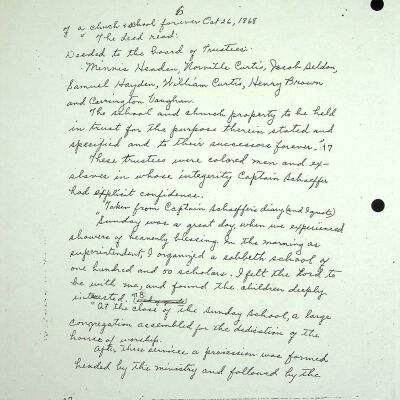 6
of a church & school forever Oct 26, 1868
" The deed read:
Deeded to the board of Trustees:
Minnis Headen, Norville Curtis, Jacob Seldon,
Samuel Hayden, William Curtis, Henry Brown
and Currington Vaughan.
The school and church property to be held
in trust for the purpose therein stated and
specified and to their successors forever." 17
These trustees were colored men and ex-
slaves in whose integerity Captain Schaeffer
had explisit confidence.
"Taken from Captain Schaffer's diary (and I quote)
"Sunday was a great day, when we experienced
showers of heavenly blessing. In the morning as
superintendent, I organized a sabbeth school of
one hundred and 00 scholars. I felt the Lord to
be with me, and found the children deeply
intrested. "18
"At the close of the Sunday School, a large
congregation assembled for the dedication of the
house of worship.
After these service a procession was formed
headed by the ministry and followed by the